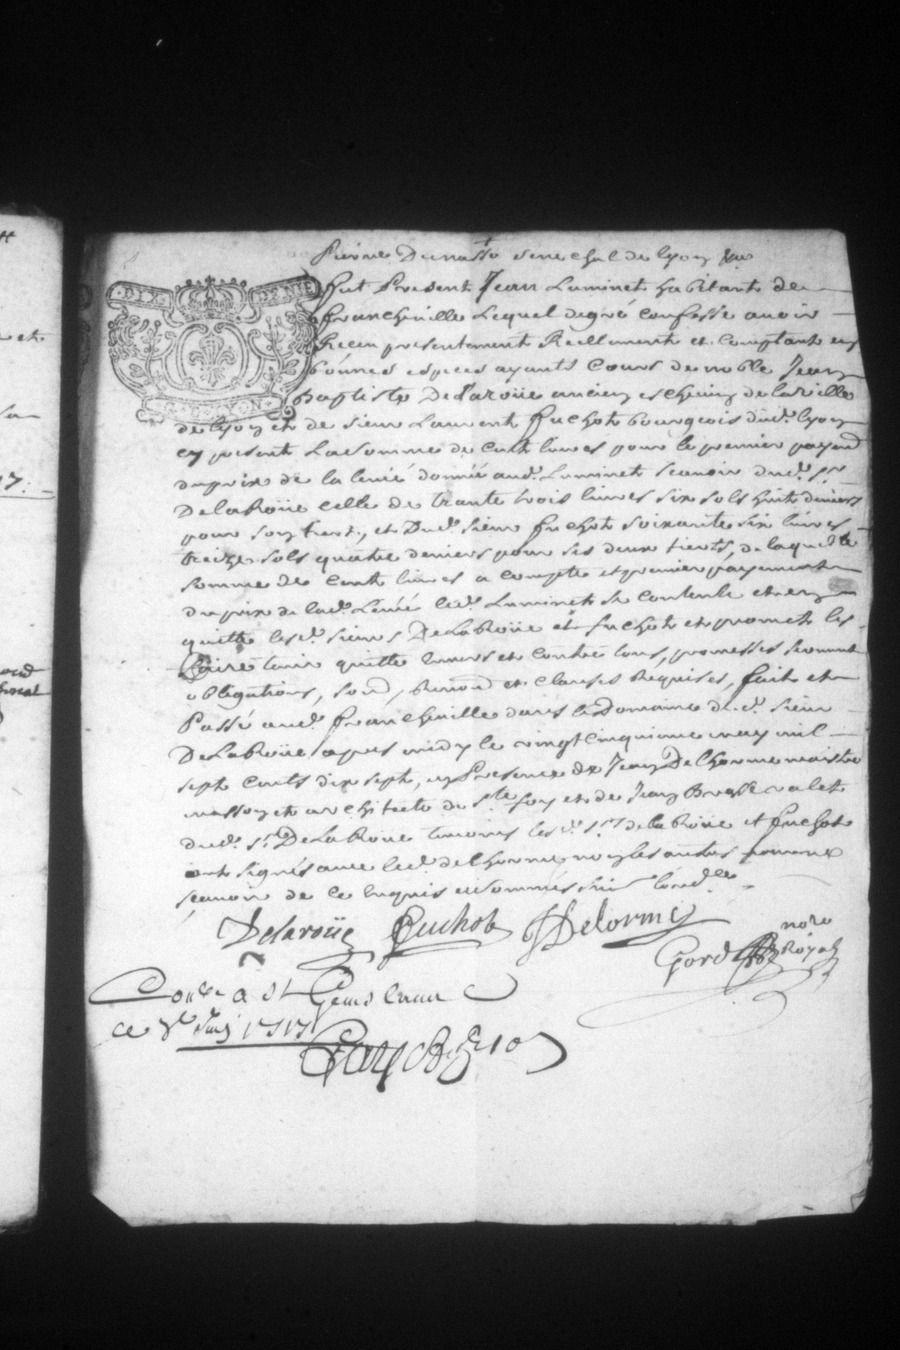 Pierre Dumas sene chal de lyon
DIX DENIE
LYON
fut Present Jean Luminet habitant de
francheville Lequel degré confesse auoir
Receu presentement Reellement et comptant en
bonnes especes ayants Cours de noble Jean
Baptiste Delaroüe ancien eschevin de la ville
de lyon et de sieur Laurent fuchot bourgeois dud. lyon
cy present La somme de Cent liures pour le premier payem.
du prix de la leueé donneé aud. Luminet scauoir dud. sr
De la Roüe celle de trante trois liures six sols huit deniers
pour son tiert, et Dud. sieur fuchot soixante six liures
treize sols quatre deniers pour ses deux tierts, de laquelle
somme de Cent liures a compte et premier payement
du prix de lad. Leueé led. Luminet se contente et en
quitte lesd. sieurs De la Roüe et fuchot et promet les
faire tenir quitte enuers et contre tous, promesses serment
obligations, soud, Renon et clauses Requises, fait et
Passé aud. francheville dans le Domaine dud. sieur
De la Roüe apres midy le vingt cinquieme may mil
sept cents dix sept, en Presence de Jean Delhorme maistre
masson et architecte de ste foy et de Jean valet
dud. sr De la Roüe temoins lesd. srs de la Roüe et fuchot
ont signés auec led. delhorme non les autres pour ne
scauoir de ce enquis et sommés
Delaroüe fuchot JDelorme
Gord nore
Royal
Conlé a st Genis Laual
ce Juin 1717